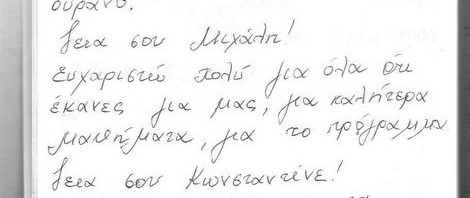 ουρανό.
Γεια σου Μιχάλη!
Ευχαριστώ πολύ για όλα ότι
έκανες για μας, για καλήτερα
μαθήματα, για το πρόγραμμα
Γεια σου Κωνσταντίνε!